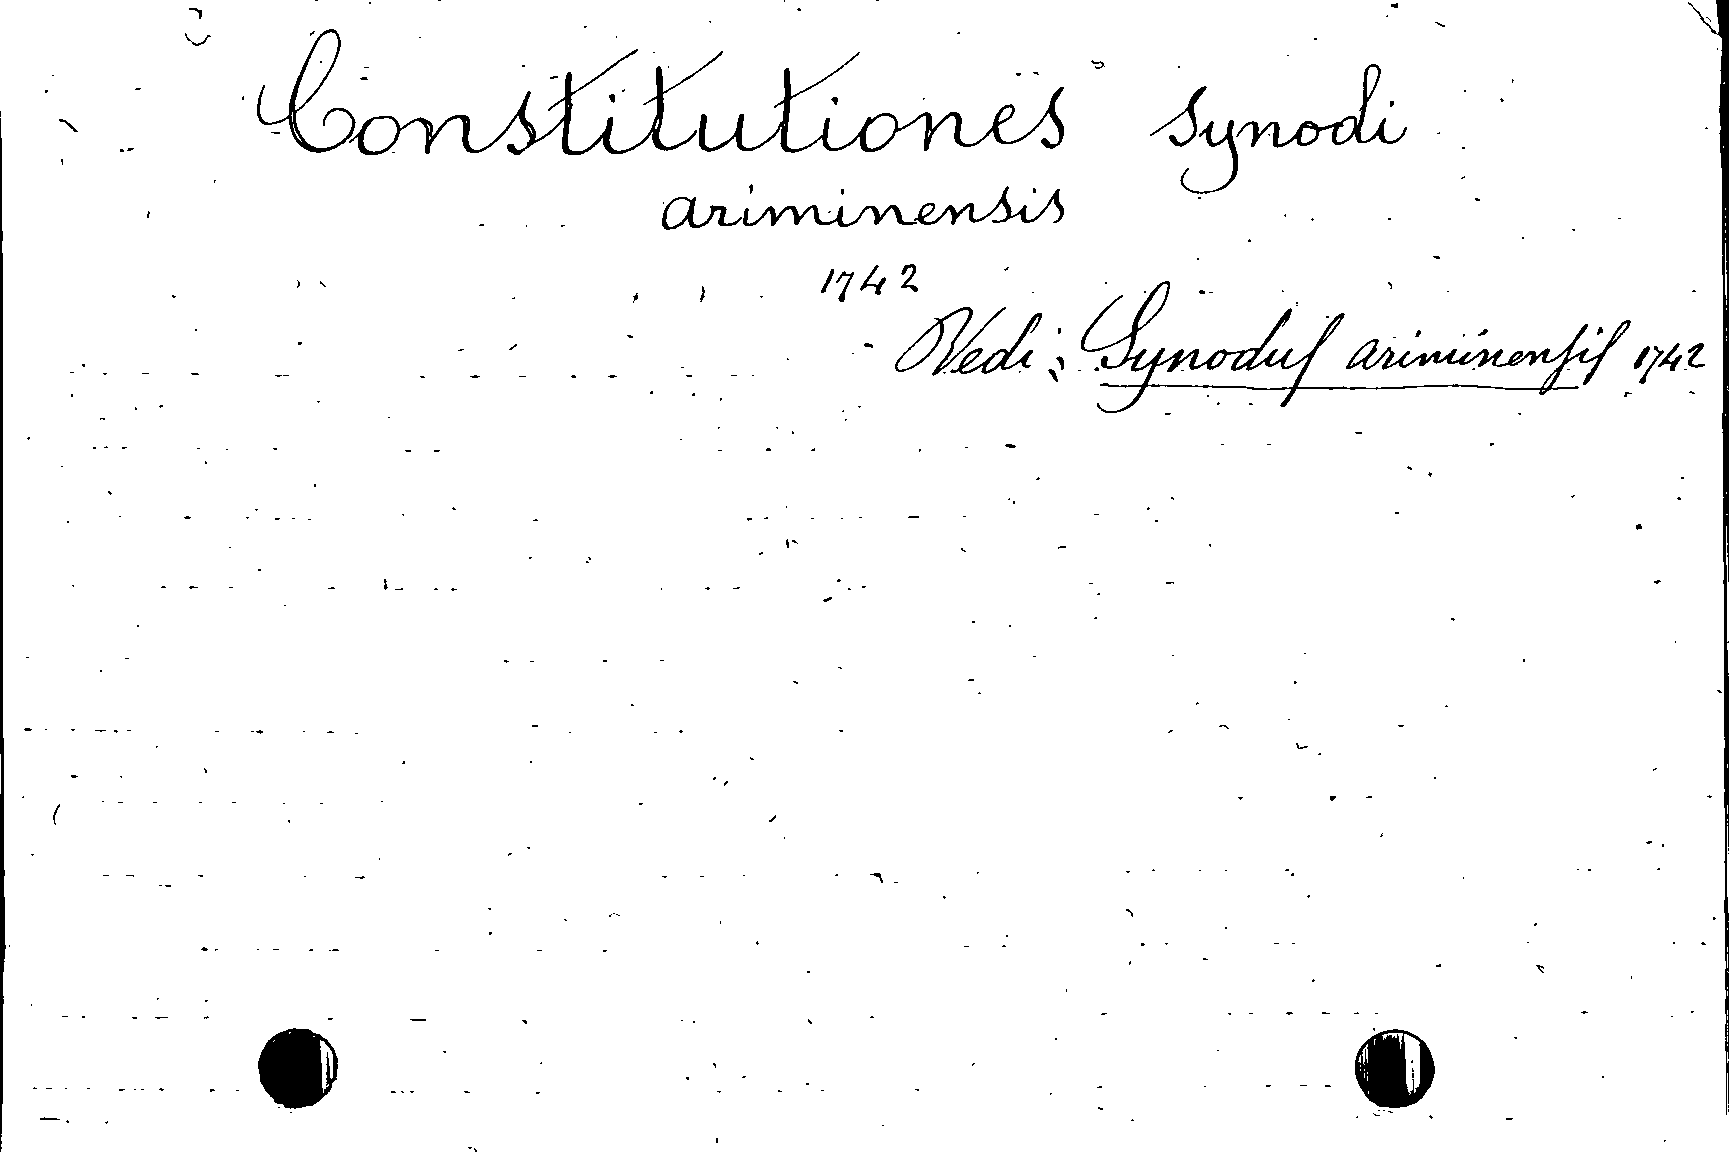 Constitutiones synodi
ariminensis
1742
Vedi: Synodus ariminensis 1742